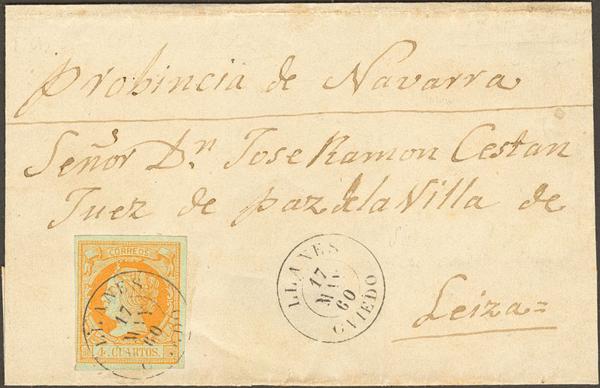 Probincia de Navarra
Señor Dn Jose Ramon Cestan
Juez de Paz de la Villa de
Leiza=
CORREOS
4 CUARTOS.
LLANES
17
60
LLANES
17
60
OVIEDO